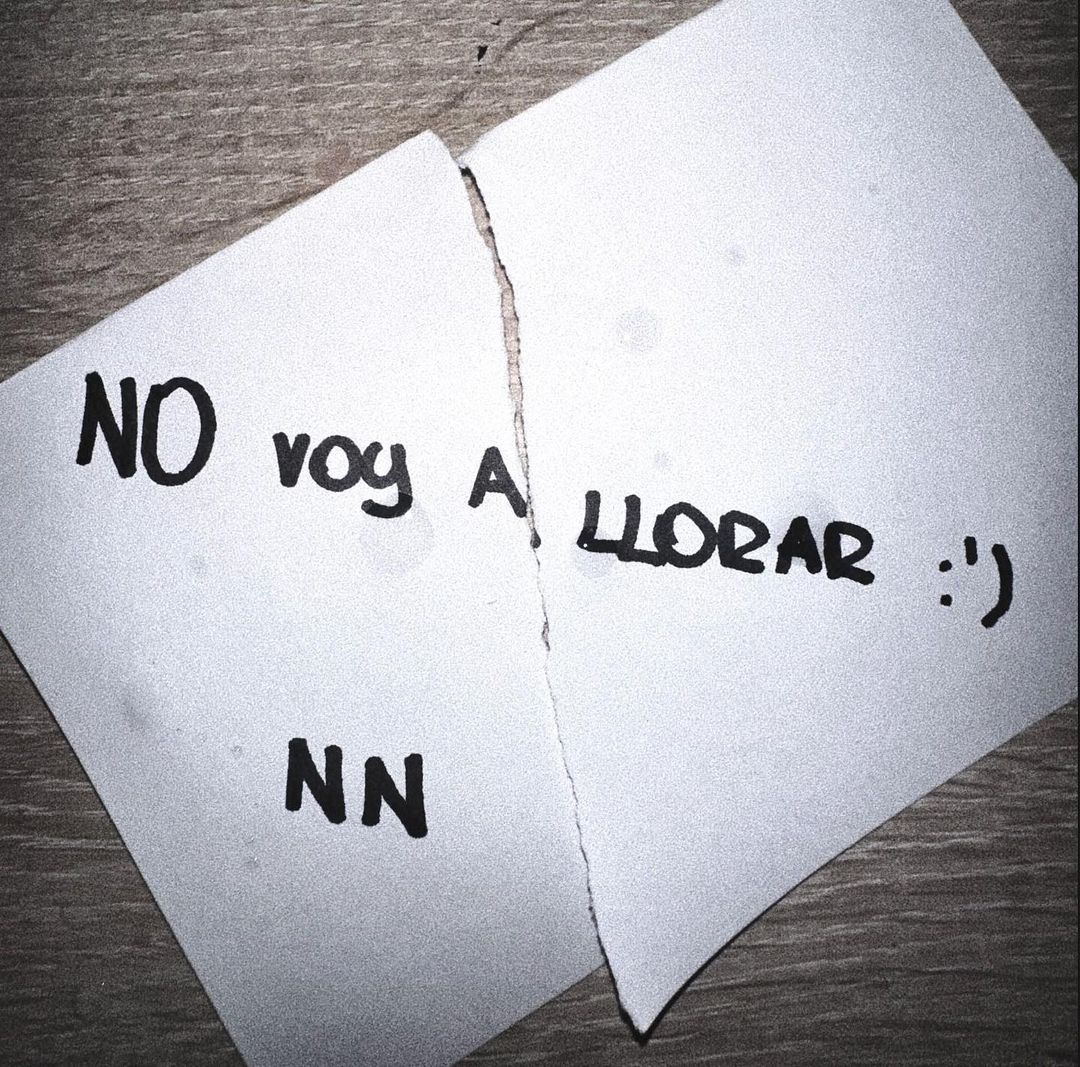 NO voy A LLORAR :')
NN